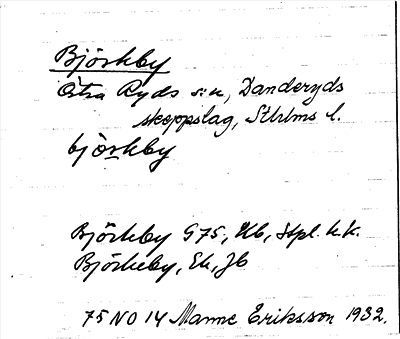 Björkby
Östra Ryds sn, Danderyds
skeppslag, Sthlms l.
björkby
Björkby G75, Hb, Hpl. k.k.
Björkeby, Ek, Jb
75 NO 14 Manne Eriksson 1932.